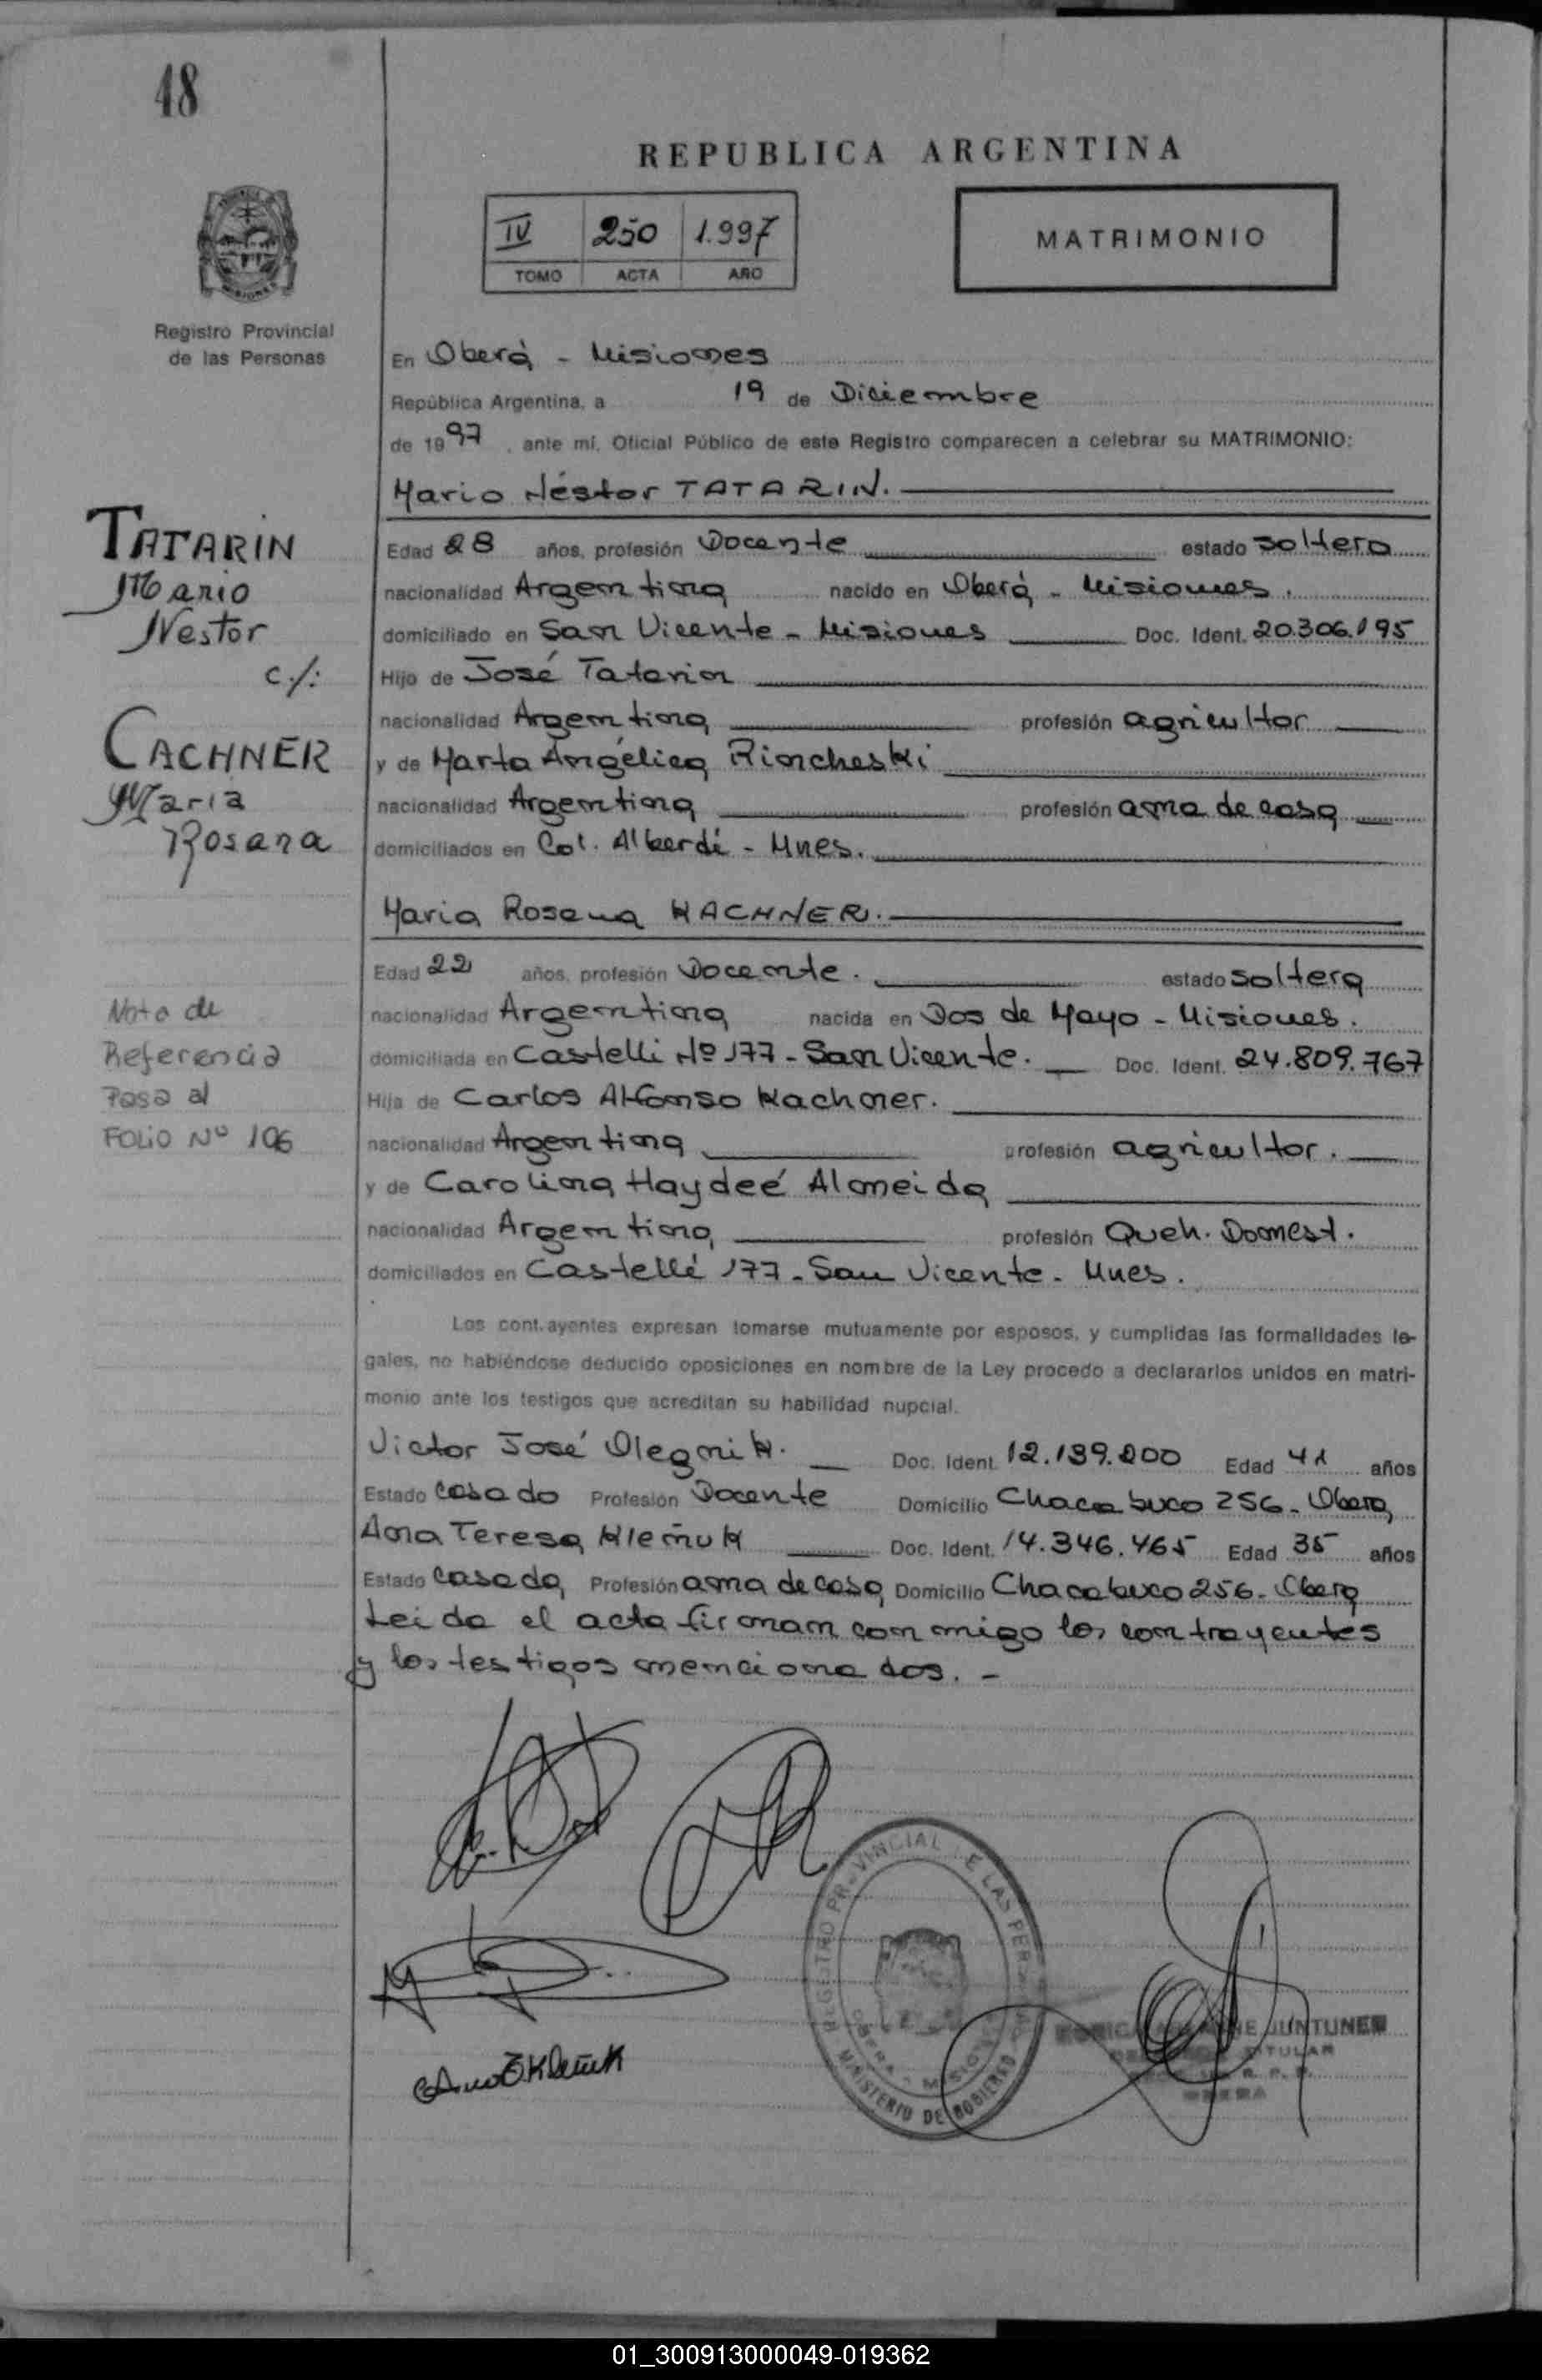 48
REPUBLICA ARGENTINA
IV 250 1.997
TOMO ACTA AÑO
MATRIMONIO
Registro Provincial
de las Personas
En Oberá - Misiones
República Argentina, a 19 de Diciembre
de 1997, ante mí, Oficial Público de este Registro comparecen a celebrar su MATRIMONIO:
Mario Néstor TATARIN.
TATARIN
Mario
Nestor
c/:
CACHNER
Maria
Rosana
Edad 28 años, profesión Docente estado soltero
nacionalidad Argentina nacido en Oberá - Misiones.
domiciliado en San Vicente - Misiones Doc. Ident. 20.306.195
Hijo de José Tatarin
nacionalidad Argentina profesión agricultor
y de Marta Angélica Rincheski
nacionalidad Argentina profesión ama de casa
domiciliados en Col. Alberdi - Mnes.
Maria Rosana KACHNER.
Nota de
Referencia
Pasa al
FOLIO Nº 106
Edad 22 años, profesión Docente. estado soltera
nacionalidad Argentina nacida en Dos de Mayo - Misiones.
domiciliada en Castelli Nº 177 - San Vicente. Doc. Ident. 24.809.767
Hija de Carlos Alfonso Kachner.
nacionalidad Argentina profesión agricultor.
y de Carolina Haydeé Almeida
nacionalidad Argentina profesión Queh. Domest.
domiciliados en Castelli 177 - San Vicente - Mnes.
Los cont.ayentes expresan tomarse mutuamente por esposos, y cumplidas las formalidades le-
gales, no habiéndose deducido oposiciones en nombre de la Ley procedo a declararlos unidos en matri-
monio ante los testigos que acreditan su habilidad nupcial.
Victor José Olegnik. Doc. Ident. 12.139.200 Edad 41 años
Estado casado Profesión Docente Domicilio Chacabuco 256 - Oberá
Ana Teresa Kleñuk Doc. Ident. 14.346.465 Edad 35 años
Estado casada Profesión ama de casa Domicilio Chacabuco 256 - Oberá
Leida el acta firman conmigo los contrayentes
y los testigos mencionados. -
REGISTRO PROVINCIAL DE LAS PER
OBERA - MISIONES
MINISTERIO DE GOBIERNO
JUNTUNEN
TITULAR
OBERA
01_300913000049-019362